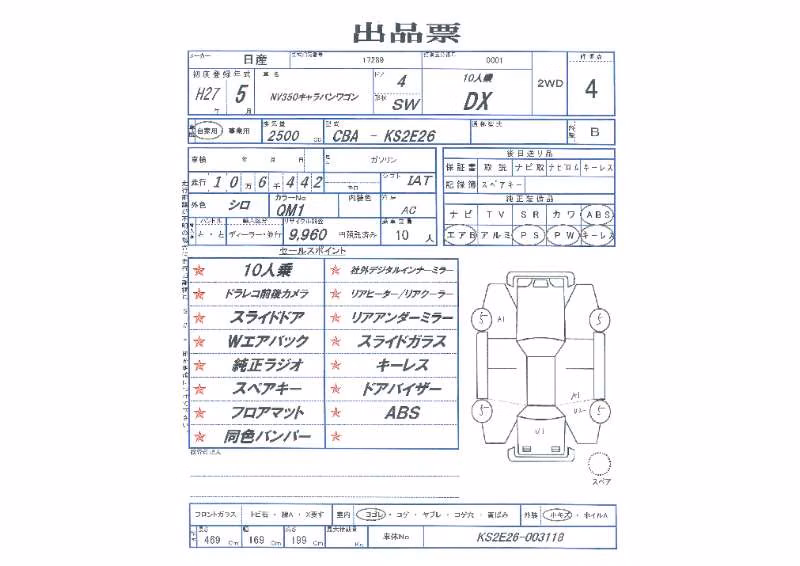 出品票
メーカー 日産 17289 0001
初度登録年式 車名 ドア 4 10人乗 2WD 評価点 4
H27 年 5 月 NV350キャラバンワゴン 形状 SW DX
自家用 事業用 排気量 2500 cc 型式 CBA - KS2E26 内装 B
車検 年 月 日 ガソリン
走行 10万6千442 シフト IAT
外色 シロ カラーNo QM1 内装色 AC
ハンドル 輸入区分 リサイクル料金 乗車定員
ディーラー・並行 9,960 円預託済み 10 人
後日送り品
保証書 取説 ナビ取 ナビロム キーレス
記録簿 スペアキー
純正装備品
ナビ TV SR カワ ABS
エアB アルミ PS PW キーレス
セールスポイント
★ 10人乗 ★ 社外デジタルインナーミラー
★ ドラレコ前後カメラ ★ リアヒーター/リアクーラー
★ スライドドア ★ リアアンダーミラー
★ Wエアバック ★ スライドガラス
★ 純正ラジオ ★ キーレス
★ スペアキー ★ ドアバイザー
★ フロアマット ★ ABS
★ 同色バンパー ★
5 A1 5
5 A1 U2 5
U1
スペア
フロントガラス トビ石・線A・X要す 室内 ヨゴレ・コゲ・ヤブレ・コゲ穴・黄ばみ 外装 小キズ・ホイルA
長さ 469 Cm 幅 169 Cm 高さ 199 Cm 最大積載量 Kg 車体No KS2E26-003118